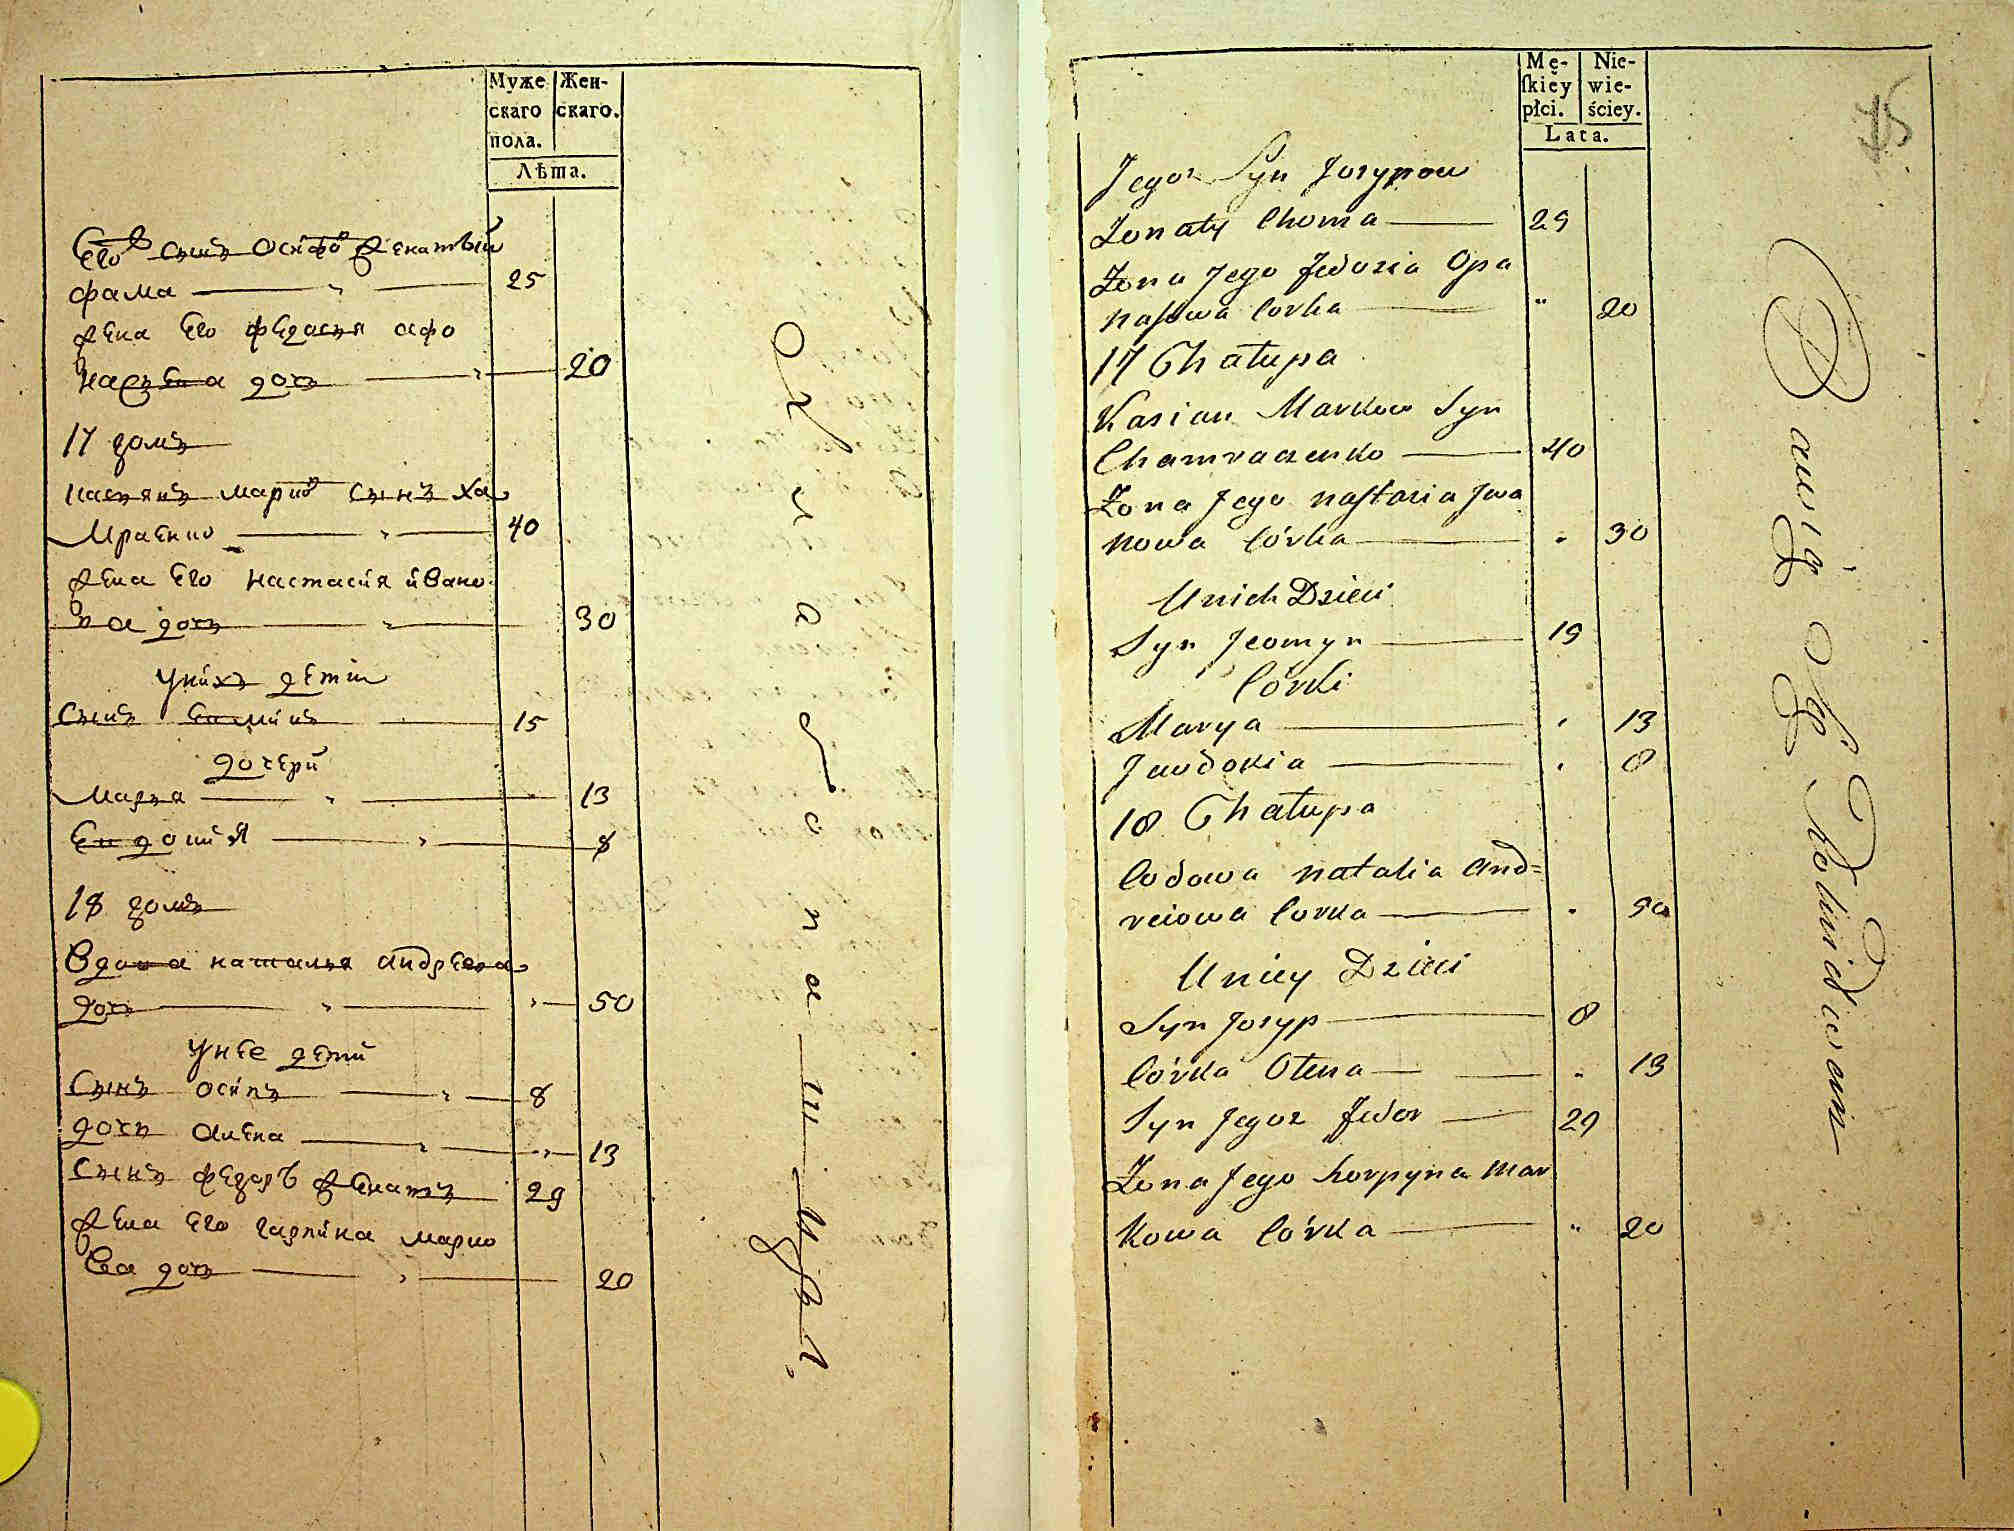 Муже
скаго
пола.
Жен-
скаго.
Лѣта.
Его сынъ осифо Женатый
фама 25
Жена Его федосья афо
насьева дочь 20
17 домъ
касьянъ марко сынъ ха
мраенко 40
Жена Его настасия ивано
ва дочь 30
у них дети
Сынъ 15
дочери
Марья 13
Евдокия 8
18 домъ
Вдова наталья андреева
дочь 50
у нее дети
Сынъ осипъ 8
дочь алена 13
Сынъ федоръ Женатъ 29
Жена Его гарпина марко
ва дочь 20
Mę-
ſkiéy
płci.
Nie-
wie-
ściey.
Lata.
Jego Syn Josypow
Żonaty Choma 25
Żona Jego Fedosia Opa
nasowa Corka " 20
17 Chałupa
Kasian Markow Syn
Chamraczenko 40
Żona Jego nastasia Jwa
nowa Córka 30
U nich Dzieci
Syn 15
Córki
Marya 13
Jawdokia 8
18 Chałupa
Wdowa natalia And=
reiowa Corka 50
U niey Dzieci
Syn Josyp 8
Córka Olena 13
Syn Jegoz Fedor 29
Żona Jego horpyna Mar
kowa Córka " 20